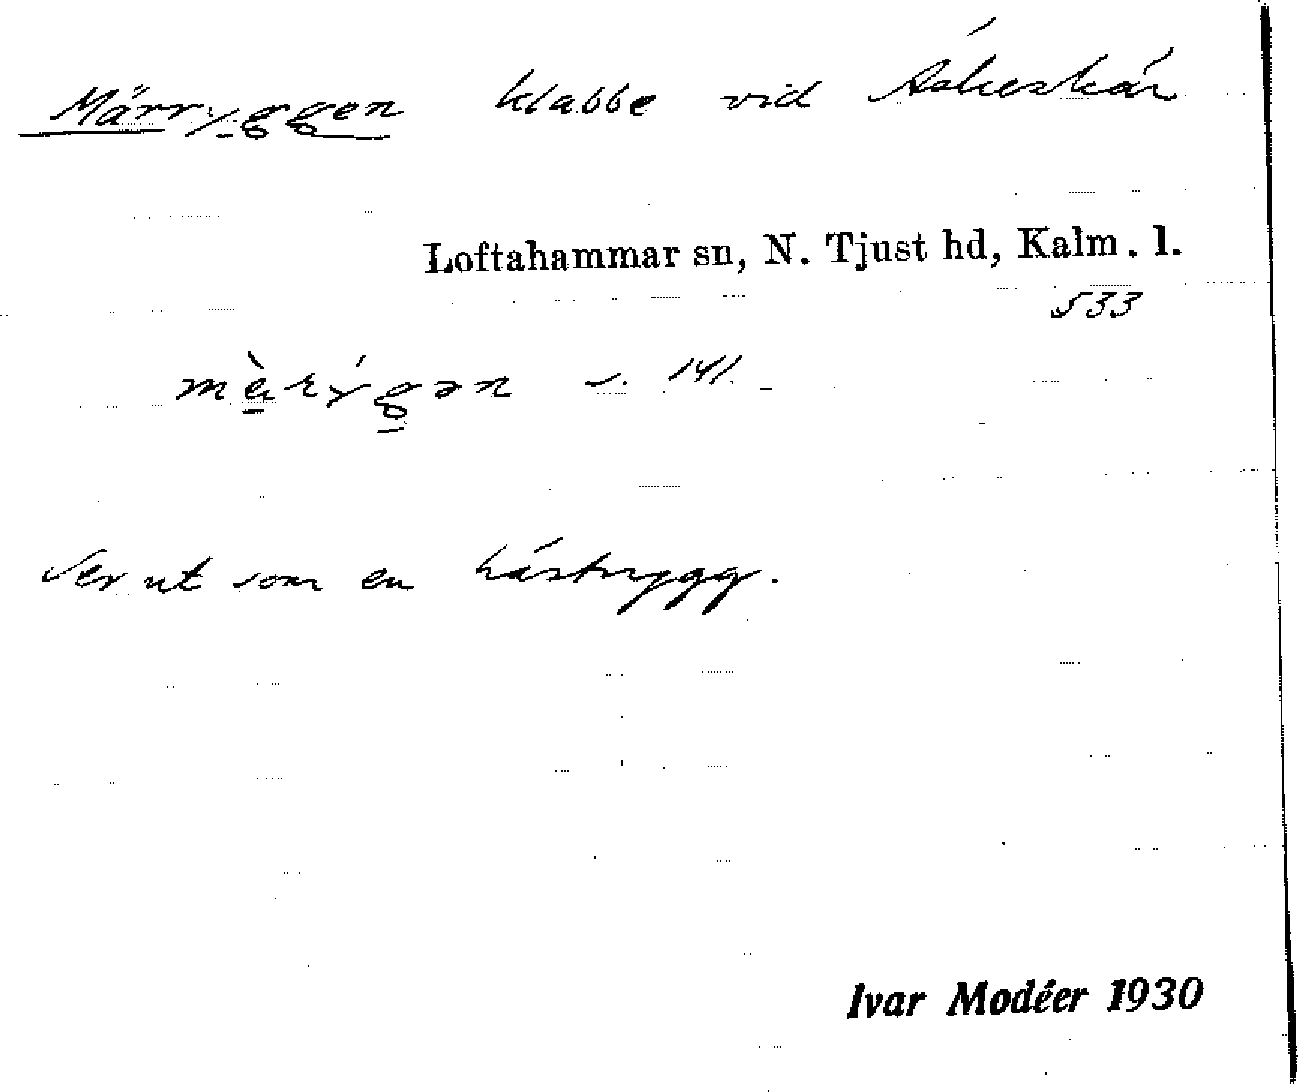 Märryggen klabbe vid Äskeskär
Loftahammar sn, N. Tjust hd, Kalm. l.
533
s. 141.
Ser ut som en hästrygg.
Ivar Modéer 1930